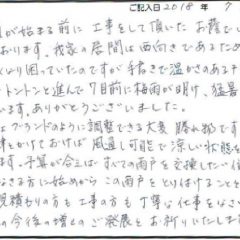 ご記入日 2018 年 7
が始まる前に工事をして頂いたお蔭で
おります。我家の居間は西向きであるため
なり困っていたのですが手書きで温かさのあるチ
トントンと進んで7月前に梅雨が明け、猛暑
います。ありがとうございました。
ブランドのように調整できる大変優れ物です
をかけておけば風通し可能で涼しい状態を
ます。予算が合えばすべての雨戸を交換したい位
なさる方に始めからこの雨戸をとり付けることを
見積わりの方も工事の方も丁寧な仕事をなさい
の今後の増々のご発展をお祈りいたします